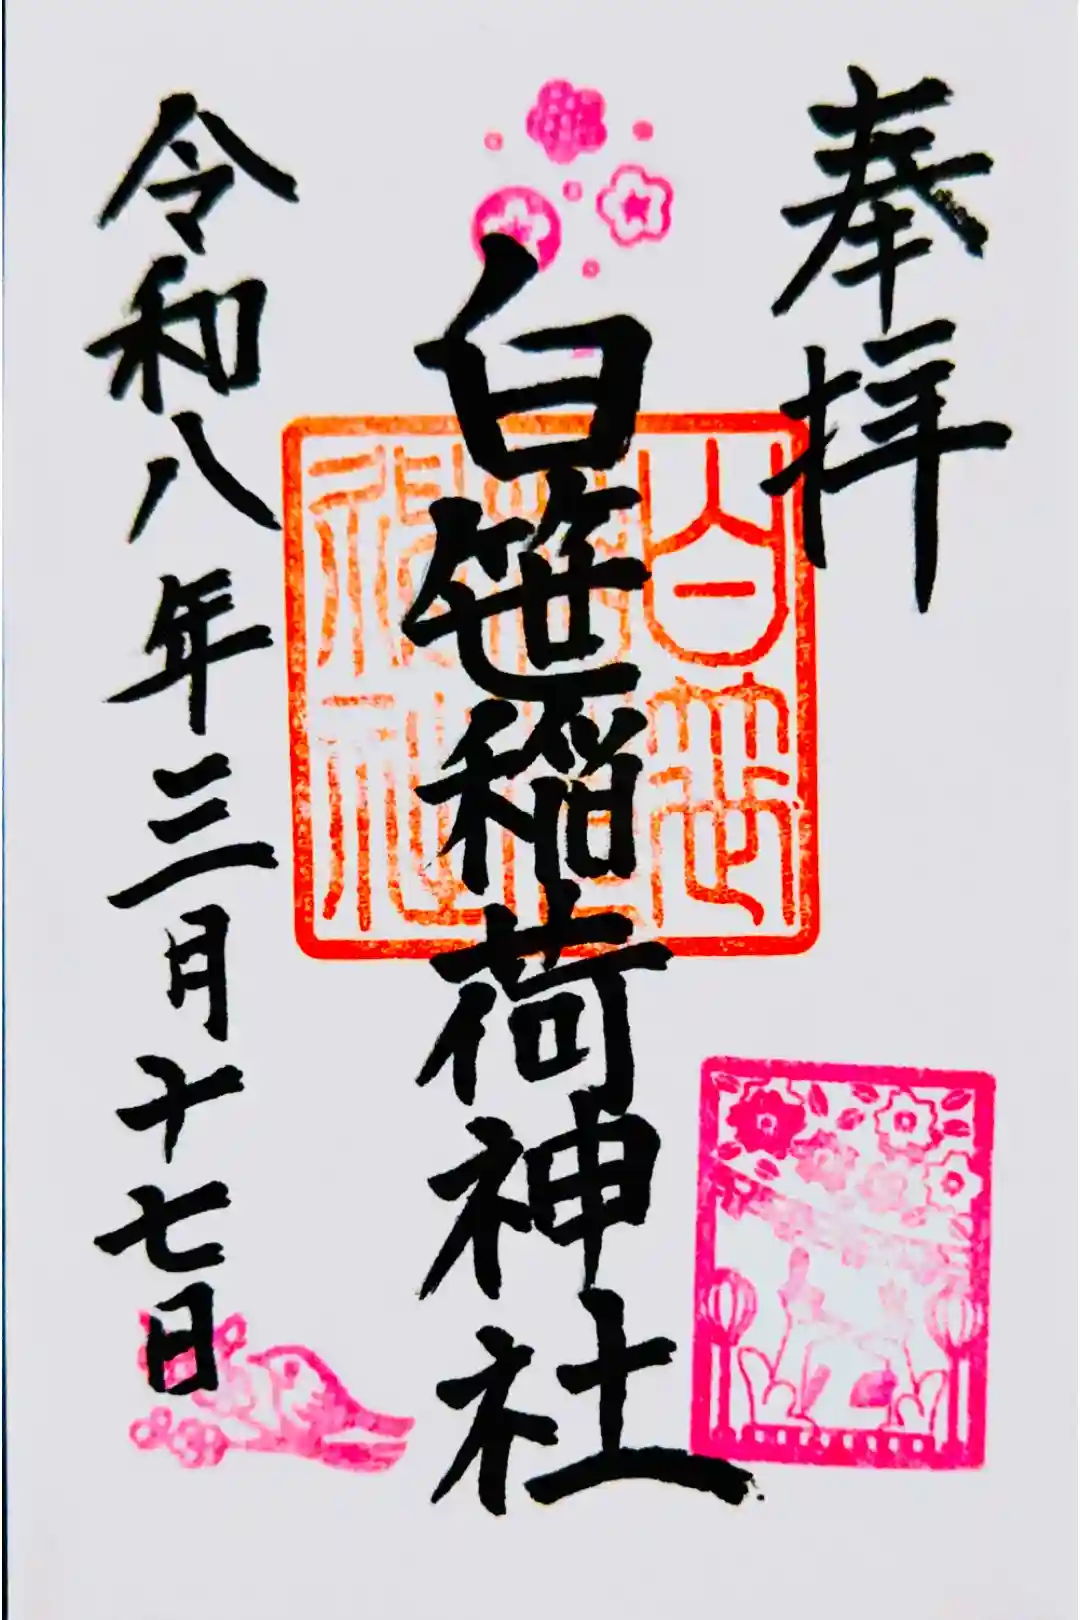 奉拝
白笹稲荷神社
令和八年三月十七日
白笹
稲荷
神社